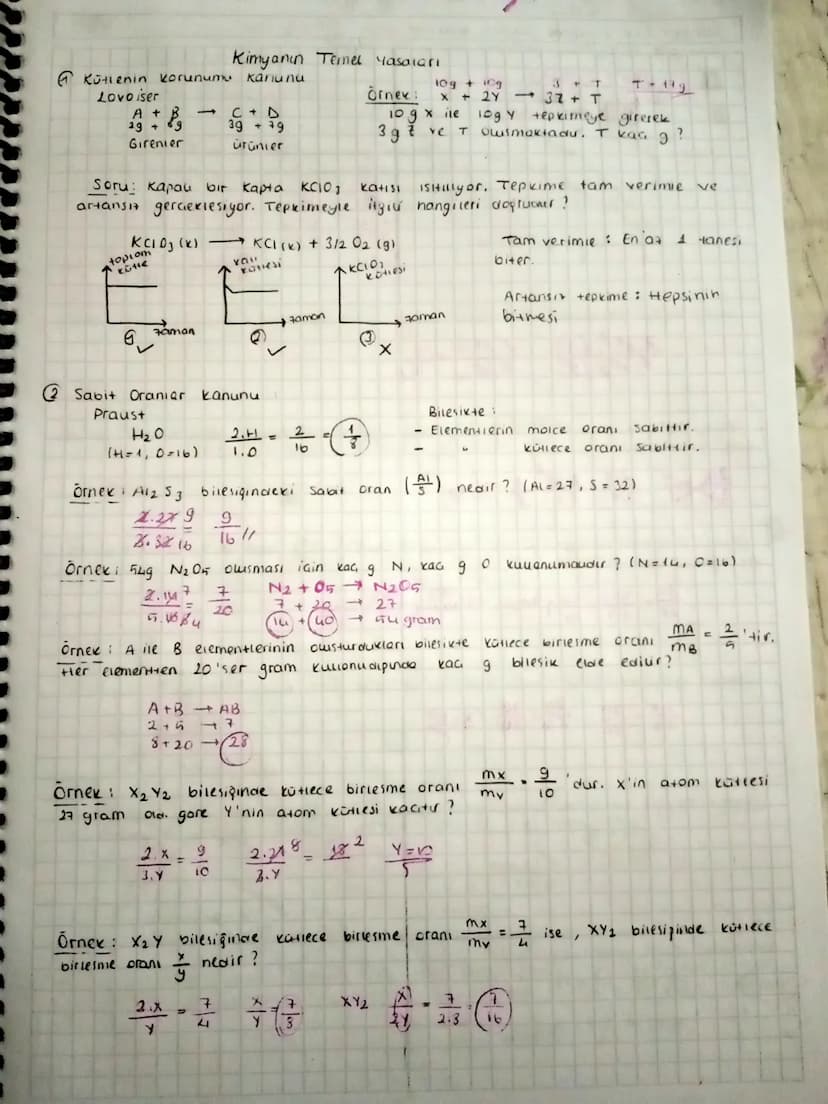 Kimyanın Temel Yasaları
① Kütlenin Korunumu Kanunu
Lavoiser
A + B → C + D
3g + 7g
Girenler ürünler
T = 17g
Örnek: X + 2Y → 3Z + T
10 g X ile 10g Y tepkimeye girerek
3 g Z ve T oluşmaktadır. T kaç g ?
Soru: Kapalı bir kapta KClO3 katısı ısıtılıyor. Tepkime tam verimle ve
artansız gerçekleşiyor. Tepkimeyle ilgili hangileri doğrudur ?
KClO3 (k) → KCl (k) + 3/2 O2 (g)
toplam kütle
zaman
① ✓
katı kütlesi
zaman
② ✓
KClO3 kütlesi
zaman
③ X
Tam verimle : En az 1 tanesi
biter.
Artansız tepkime : Hepsinin
bitmesi
② Sabit Oranlar Kanunu
Praust
H2O 2.H/1.O = 2/16 = 1/8
(H=1, O=16)
Bileşikte :
- Elementlerin molce oranı sabittir.
- " kütlece oranı sabittir.
Örnek : Al2S3 bileşiğindeki sabit oran (Al/S) nedir ? (Al=27, S=32)
2.27 9 / 3.32 16 = 9/16 //
Örnek: 54g N2O5 oluşması için kaç g N, kaç g O kullanılmalıdır ? (N=14, O=16)
2.14 7 / 5.16 = 7/20
N2 + O5 → N2O5
7 + 20 → 27
14 + 40 → 54 gram
Örnek : A ile B elementlerinin oluşturdukları bileşikte kütlece birleşme oranı mA/mB = 2/5 'tir.
Her elementten 20'ser gram kullanıldığında kaç g bileşik elde edilir?
A+B → AB
2+5 → 7
8+20 → 28
Örnek : X2Y2 bileşiğinde kütlece birleşme oranı mx/my = 9/10 'dur. X'in atom kütlesi
27 gram old. göre Y'nin atom kütlesi kaçtır ?
2.X/3.Y = 9/10
Örnek : X2Y bileşiğinde kütlece birleşme oranı mx/my = 7/4 ise , XY2 bileşiğinde kütlece
birleşme oranı x/y nedir ?
2.X/Y = 7/4 XY2 X/2Y = 7/2.8 = 7/16